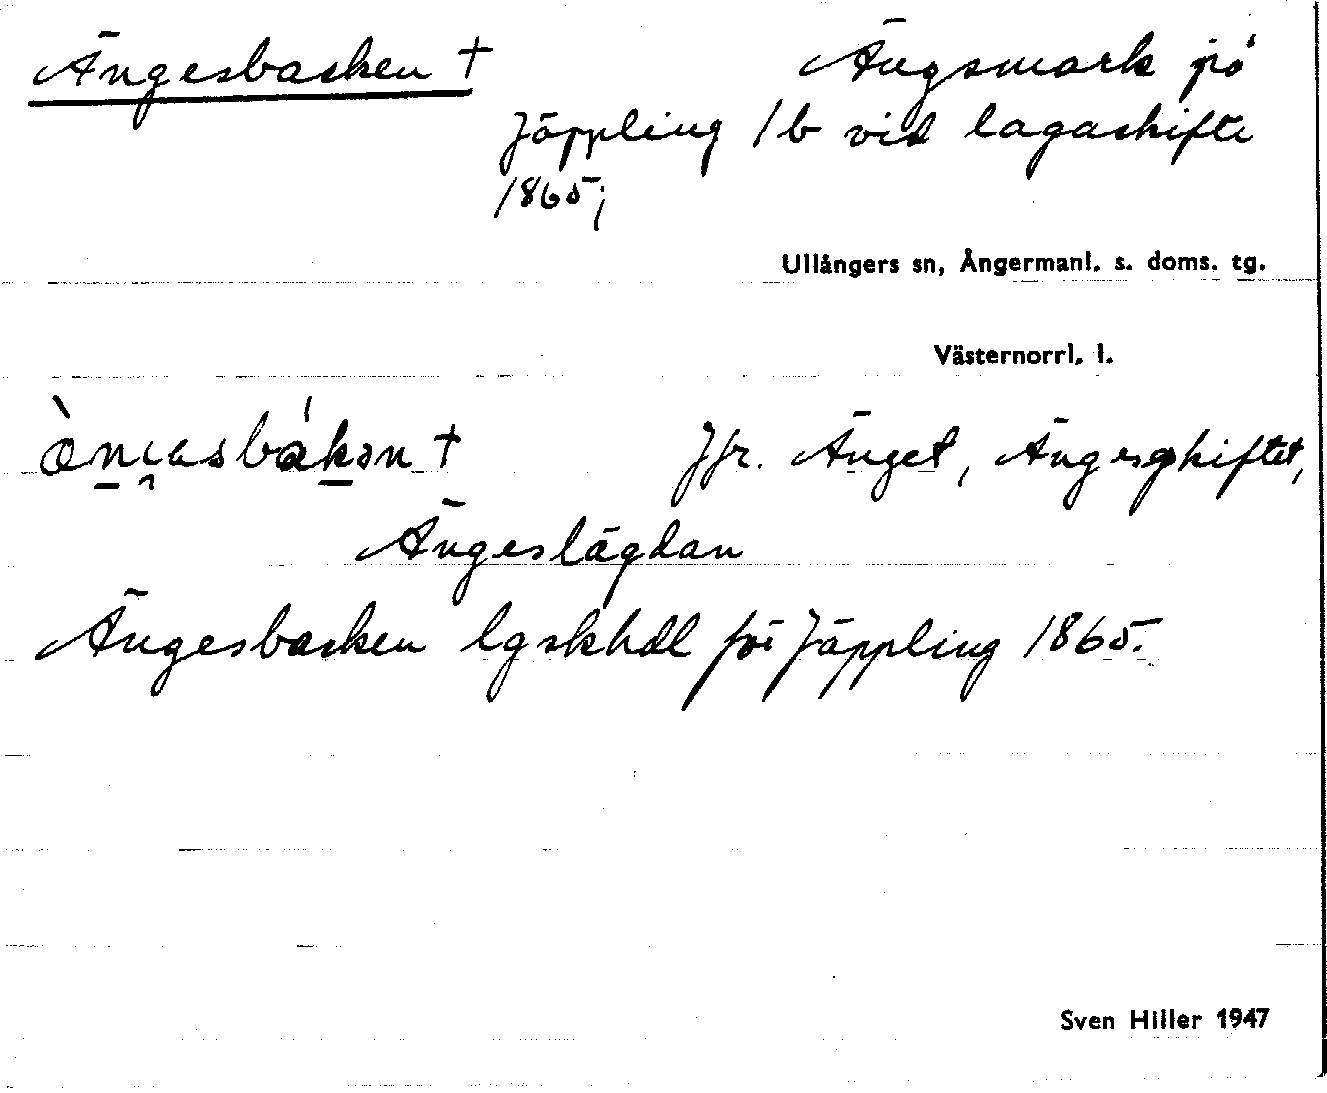 Ängesbacken † Ängsmark på
Jäppling 1b vid lagaskifte
1865;
Ullångers sn, Ångermanl. s. doms. tg.
Västernorrl. l.
† Jfr. Änget, Ängesskiftet,
Ängeslägdan
Ängesbacken lgskhdl för Jäppling 1865.
Sven Hiller 1947